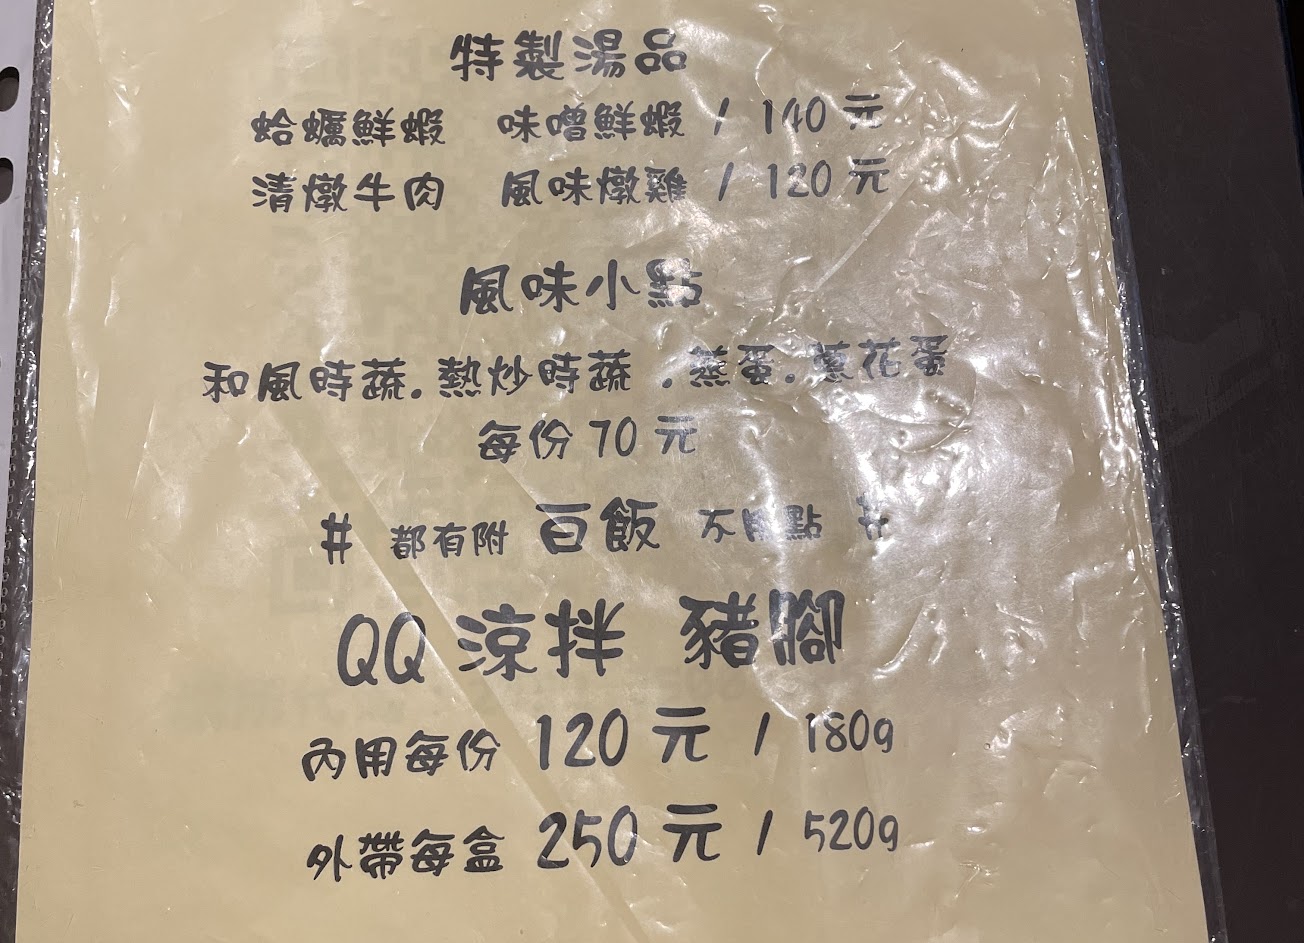 特製湯品
蛤蠣鮮蝦 味噌鮮蝦 / 140 元
清燉牛肉 風味燉雞 / 120 元
風味小點
和風時蔬.熱炒時蔬 .蒸蛋.蔥花蛋
每份 70 元
# 都有附 白飯 不用點 #
QQ 涼拌 豬腳
內用每份 120 元 / 180g
外帶每盒 250 元 / 520g